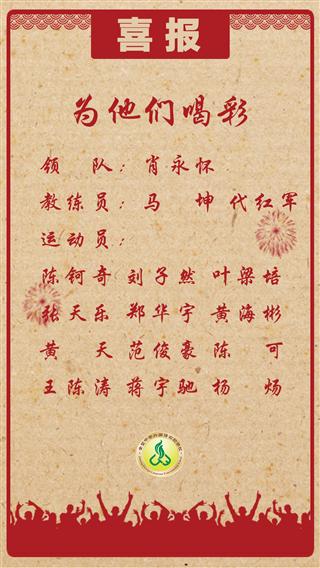 喜报
为他们喝彩
领 队：肖永怀
教练员：马 坤 代红军
运动员：
陈钶奇 刘子然 叶梁培
张天乐 郑华宇 黄海彬
黄 天 范俊豪 陈 可
王陈涛 蒋宇驰 杨 炀